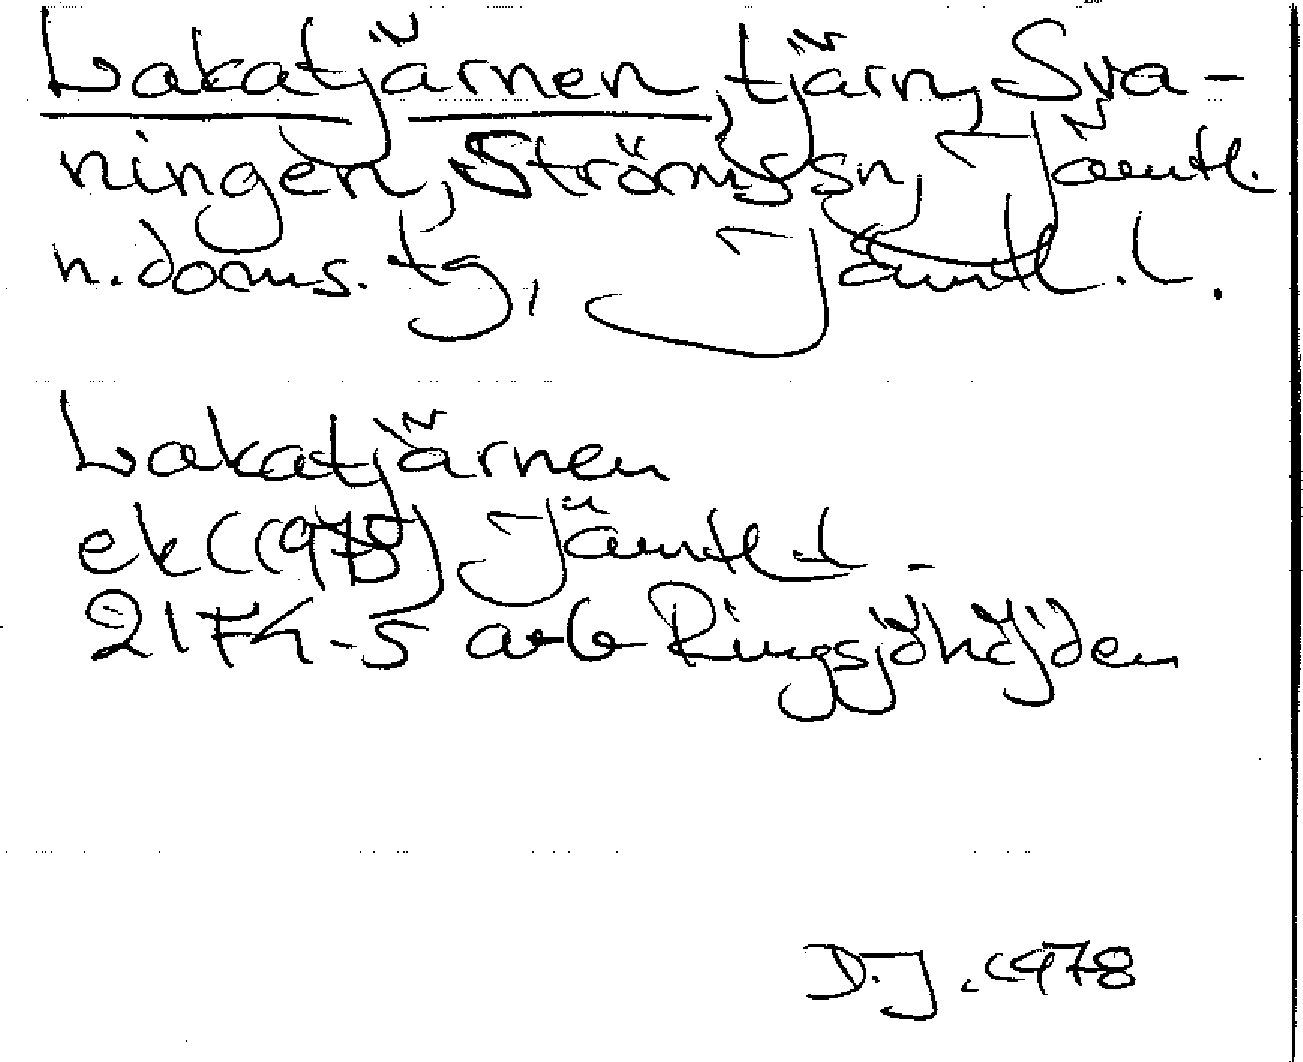 Lakatjärnen, tjärn, Sva-
ningen, Ströms sn, Jämtl.
n. doms. tg, Jämtl. l.
Lakatjärnen
ek (1975) Jämtl l
21F4-5 ab Ringsjöhöjden
D.J. 1978